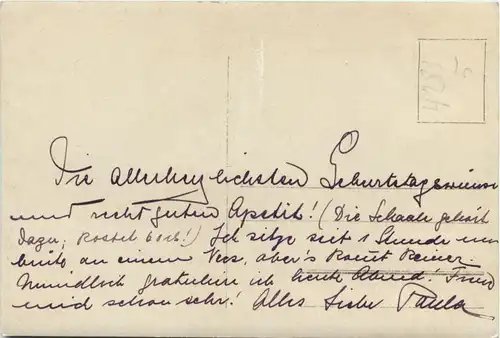 4281
Die allerherzlichsten Geburtstagswünsche
und recht guten Apetit! (Die Schaale gehört
dazu, kostet 60 !) Ich sitze seit 1 Stunde
an einem Vers, aber's kommt keiner.
Mündlich gratuliere ich heute Abend! Freu
mich schon sehr! Alles Liebe Paula